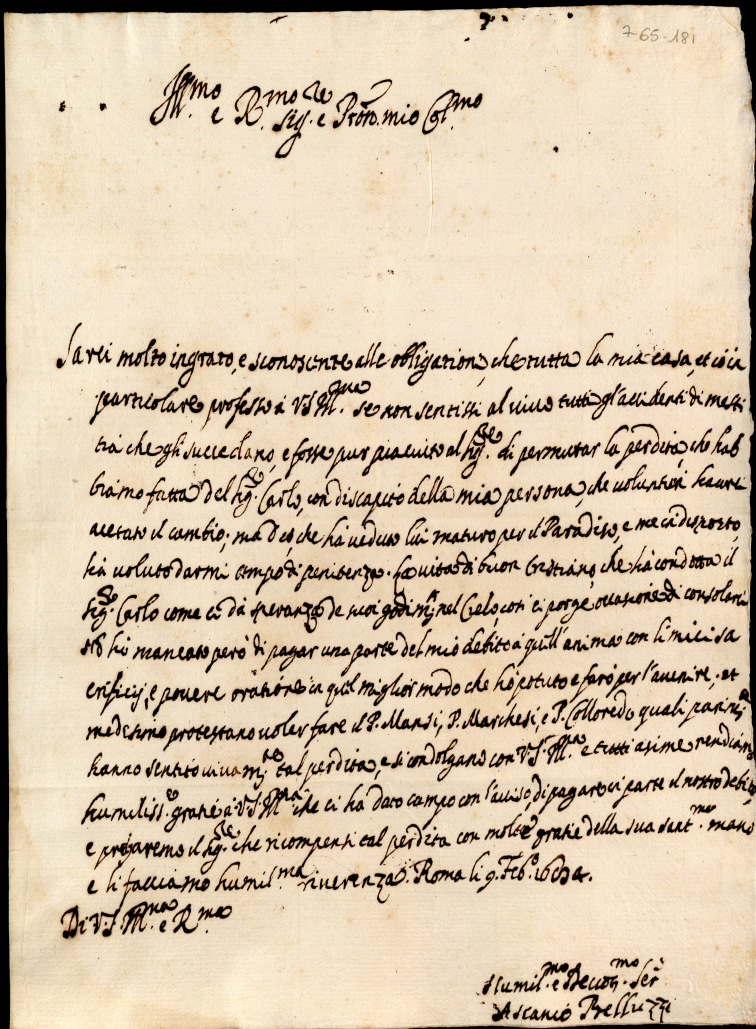 7-65-181
Ill.mo e R.mo Sig.re e Pròn. mio Col.mo
Sarei molto ingrato, e sconoscente alle obligationi, che tutta la mia casa, et io in
particolare professo à V.S. Ill.ma se non sentissi al vivo tutti gl'accidenti di mesti
tia che gli succedano, e fosse pur piaciuto al Sig.re di permutar la perdita, che hab
biamo fatta del Sig.r Carlo, con discapito della mia persona, che volentieri haurei
acetato il cambio; ma Dio, che hà veduto lui maturo per il Paradiso, e me indisposto,
hà voluto darmi tempo di penitenza. La vita di buon Cristiano, che hà condotta il
Sig.r Carlo come ci dà speranza de suoi godim.ti nel Cielo, così ci porge occasione di consolarci
nò hò mancato però di pagar una parte del mio debito à quell'anima con li miei sa
crificij, e povere orationi in quel miglior modo che hò potuto e farò per l'avenire, et
medesimo protestano voler fare il P. Mansi, P. Marchesi, e P. Colloredo quali parim.te
hanno sentito vivam.te tal perdita, e si condolgano con V.S. Ill.ma e tutti asieme rendiamo
humiliss.e gratie à V.S. Ill.ma che ci ha dato campo con l'auiso, di pagare in parte il nostro debito
e pregaremo il Sig.re che ricompenti tal perdita con molte gratie della sua sant.ma mano
e li facciamo humil.ma riverenza. Roma li 9. Feb.o
Di V.S. Ill.ma e R.ma
Humil.mo e Devot.mo Ser.r
Ascanio Belluzzi